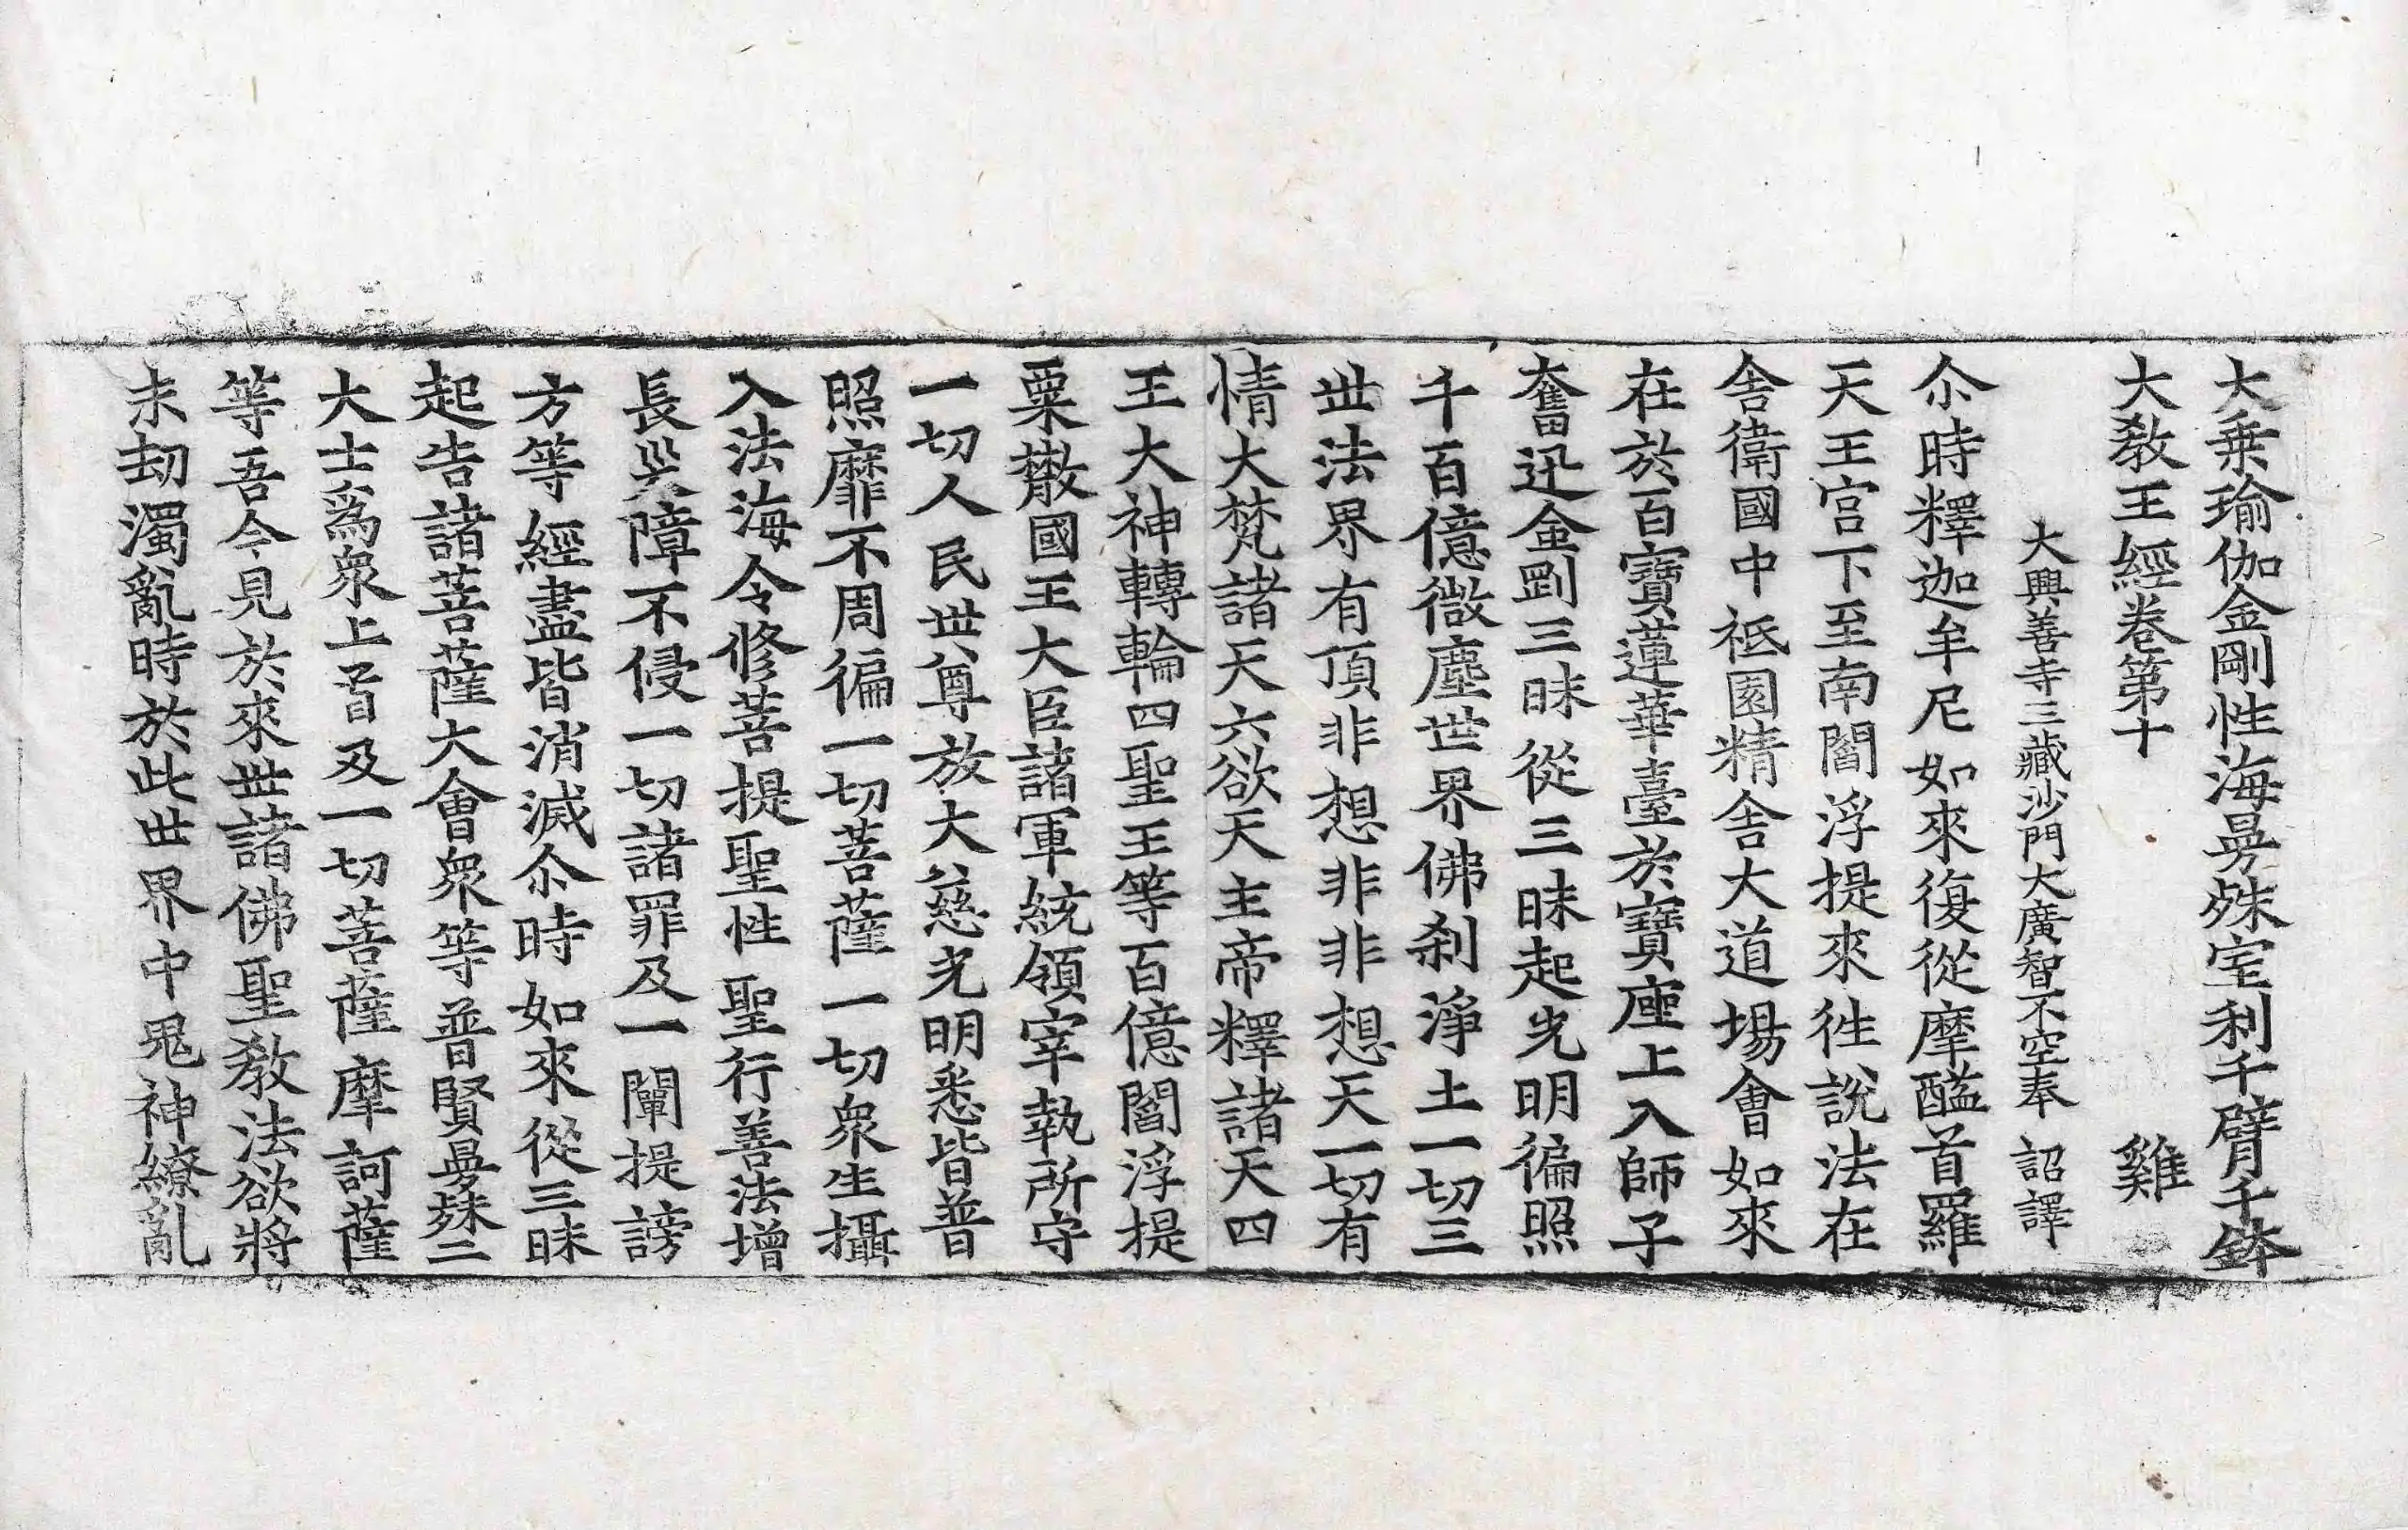 大乗瑜伽金剛性海曼殊室利千臂千鉢
大教王經卷第十　雞
大興善寺三藏沙門大廣智不空奉　詔譯
尒時釋迦牟尼如來復從摩醯首羅
天王宫下至南閻浮提來徃說法在
舎衛國中祗園精舎大道場會如來
在於百寶蓮華臺於寶座上入師子
奮迅金剛三昧從三昧起光明徧照
千百億微塵世界佛刹淨土一切三
丗法界有頂非想非非想天一切有
情大梵諸天六欲天主帝釋諸天四
王大神轉輪四聖王等百億閻浮提
粟散國王大臣諸軍統領宰執所守
一切人民丗尊放大慈光明悉皆普
照靡不周徧一切菩薩一切衆生攝
入法海令修菩提聖性聖行善法增
長災障不侵一切諸罪及一闡提謗
方等經盡皆消滅尒時如來從三昧
起告諸菩薩大會衆等普賢曼殊二
大士爲衆上首及一切菩薩摩訶薩
等吾今見於來丗諸佛聖教法欲將
末劫濁亂時於此丗界中鬼神繚亂